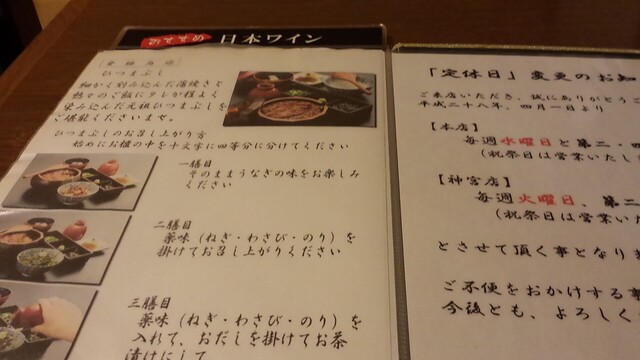 おすすめ 日本ワイン
ひつまぶし
細かく刻み込んだ蒲焼きと
熱々のご飯にタレが程よく
染み込んだ元祖ひつまぶしを
ご堪能くださいませ。
ひつまぶしのお召し上がり方
始めにお櫃の中を十文字に四等分に分けてください
一膳目
そのままうなぎの味をお楽しみ
ください
二膳目
薬味（ねぎ・わさび・のり）を
掛けてお召し上がりください
三膳目
薬味（ねぎ・わさび・のり）を
入れて、おだしを掛けてお茶
漬けにして
「定休日」変更のお知
ご来店いただき、誠にありがとうご
平成二十八年、四月一日より
【本店】
毎週水曜日と第二・四
（祝祭日は営業いたし
【神宮店】
毎週火曜日、第二
（祝祭日は営業いた
とさせて頂く事となりま
ご不便をおかけする事
今後とも、よろしく